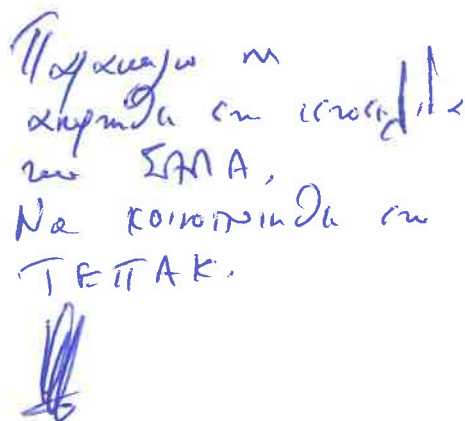 Παρακαλώ να
αναρτηθεί στη ιστοσελίδα
του ΣΑΠΑ.
Να κοινοποιηθεί στο
ΤΕΠΑΚ.